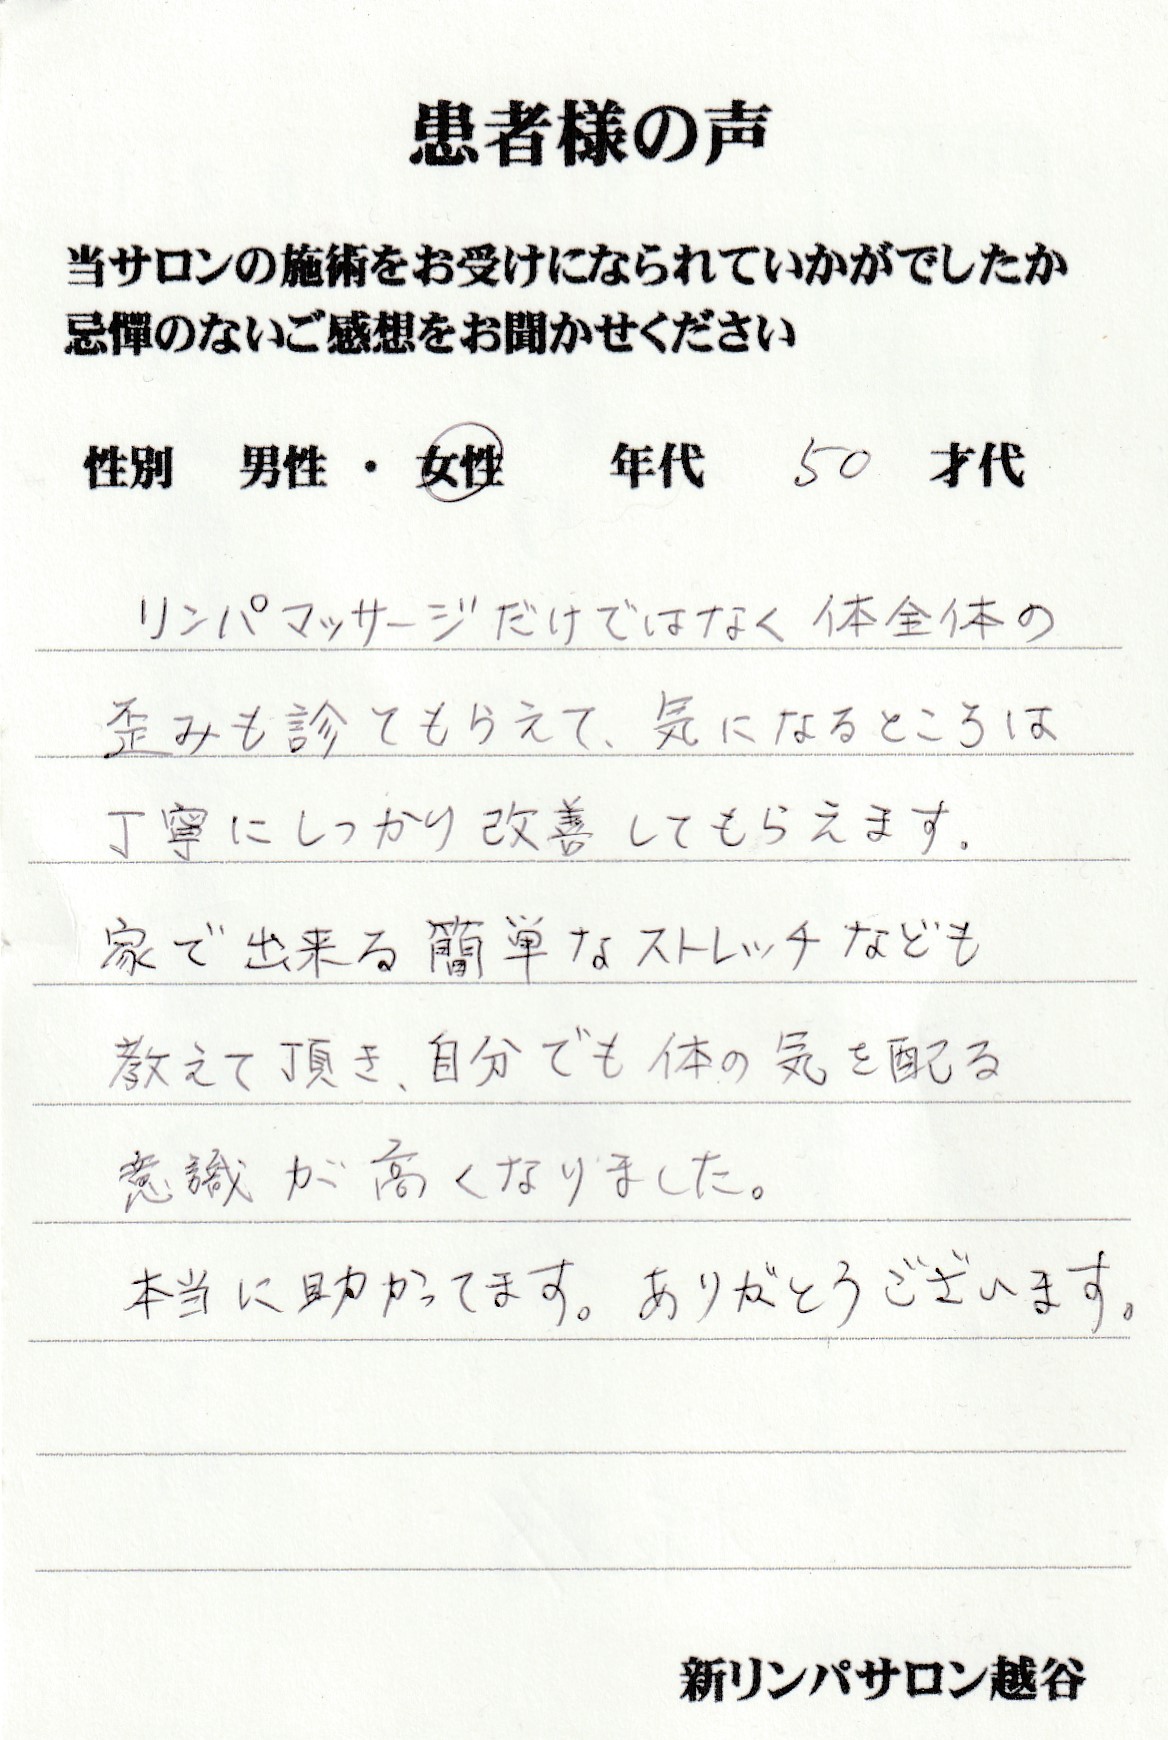 患者様の声
当サロンの施術をお受けになられていかがでしたか
忌憚のないご感想をお聞かせください
性別 男性 ・ 女性 年代 50 才代
リンパマッサージだけではなく体全体の
歪みも診てもらえて、気になるところは
丁寧にしっかり改善してもらえます。
家で出来る簡単なストレッチなども
教えて頂き、自分でも体の気を配る
意識が高くなりました。
本当に助かってます。ありがとうございます。
新リンパサロン越谷